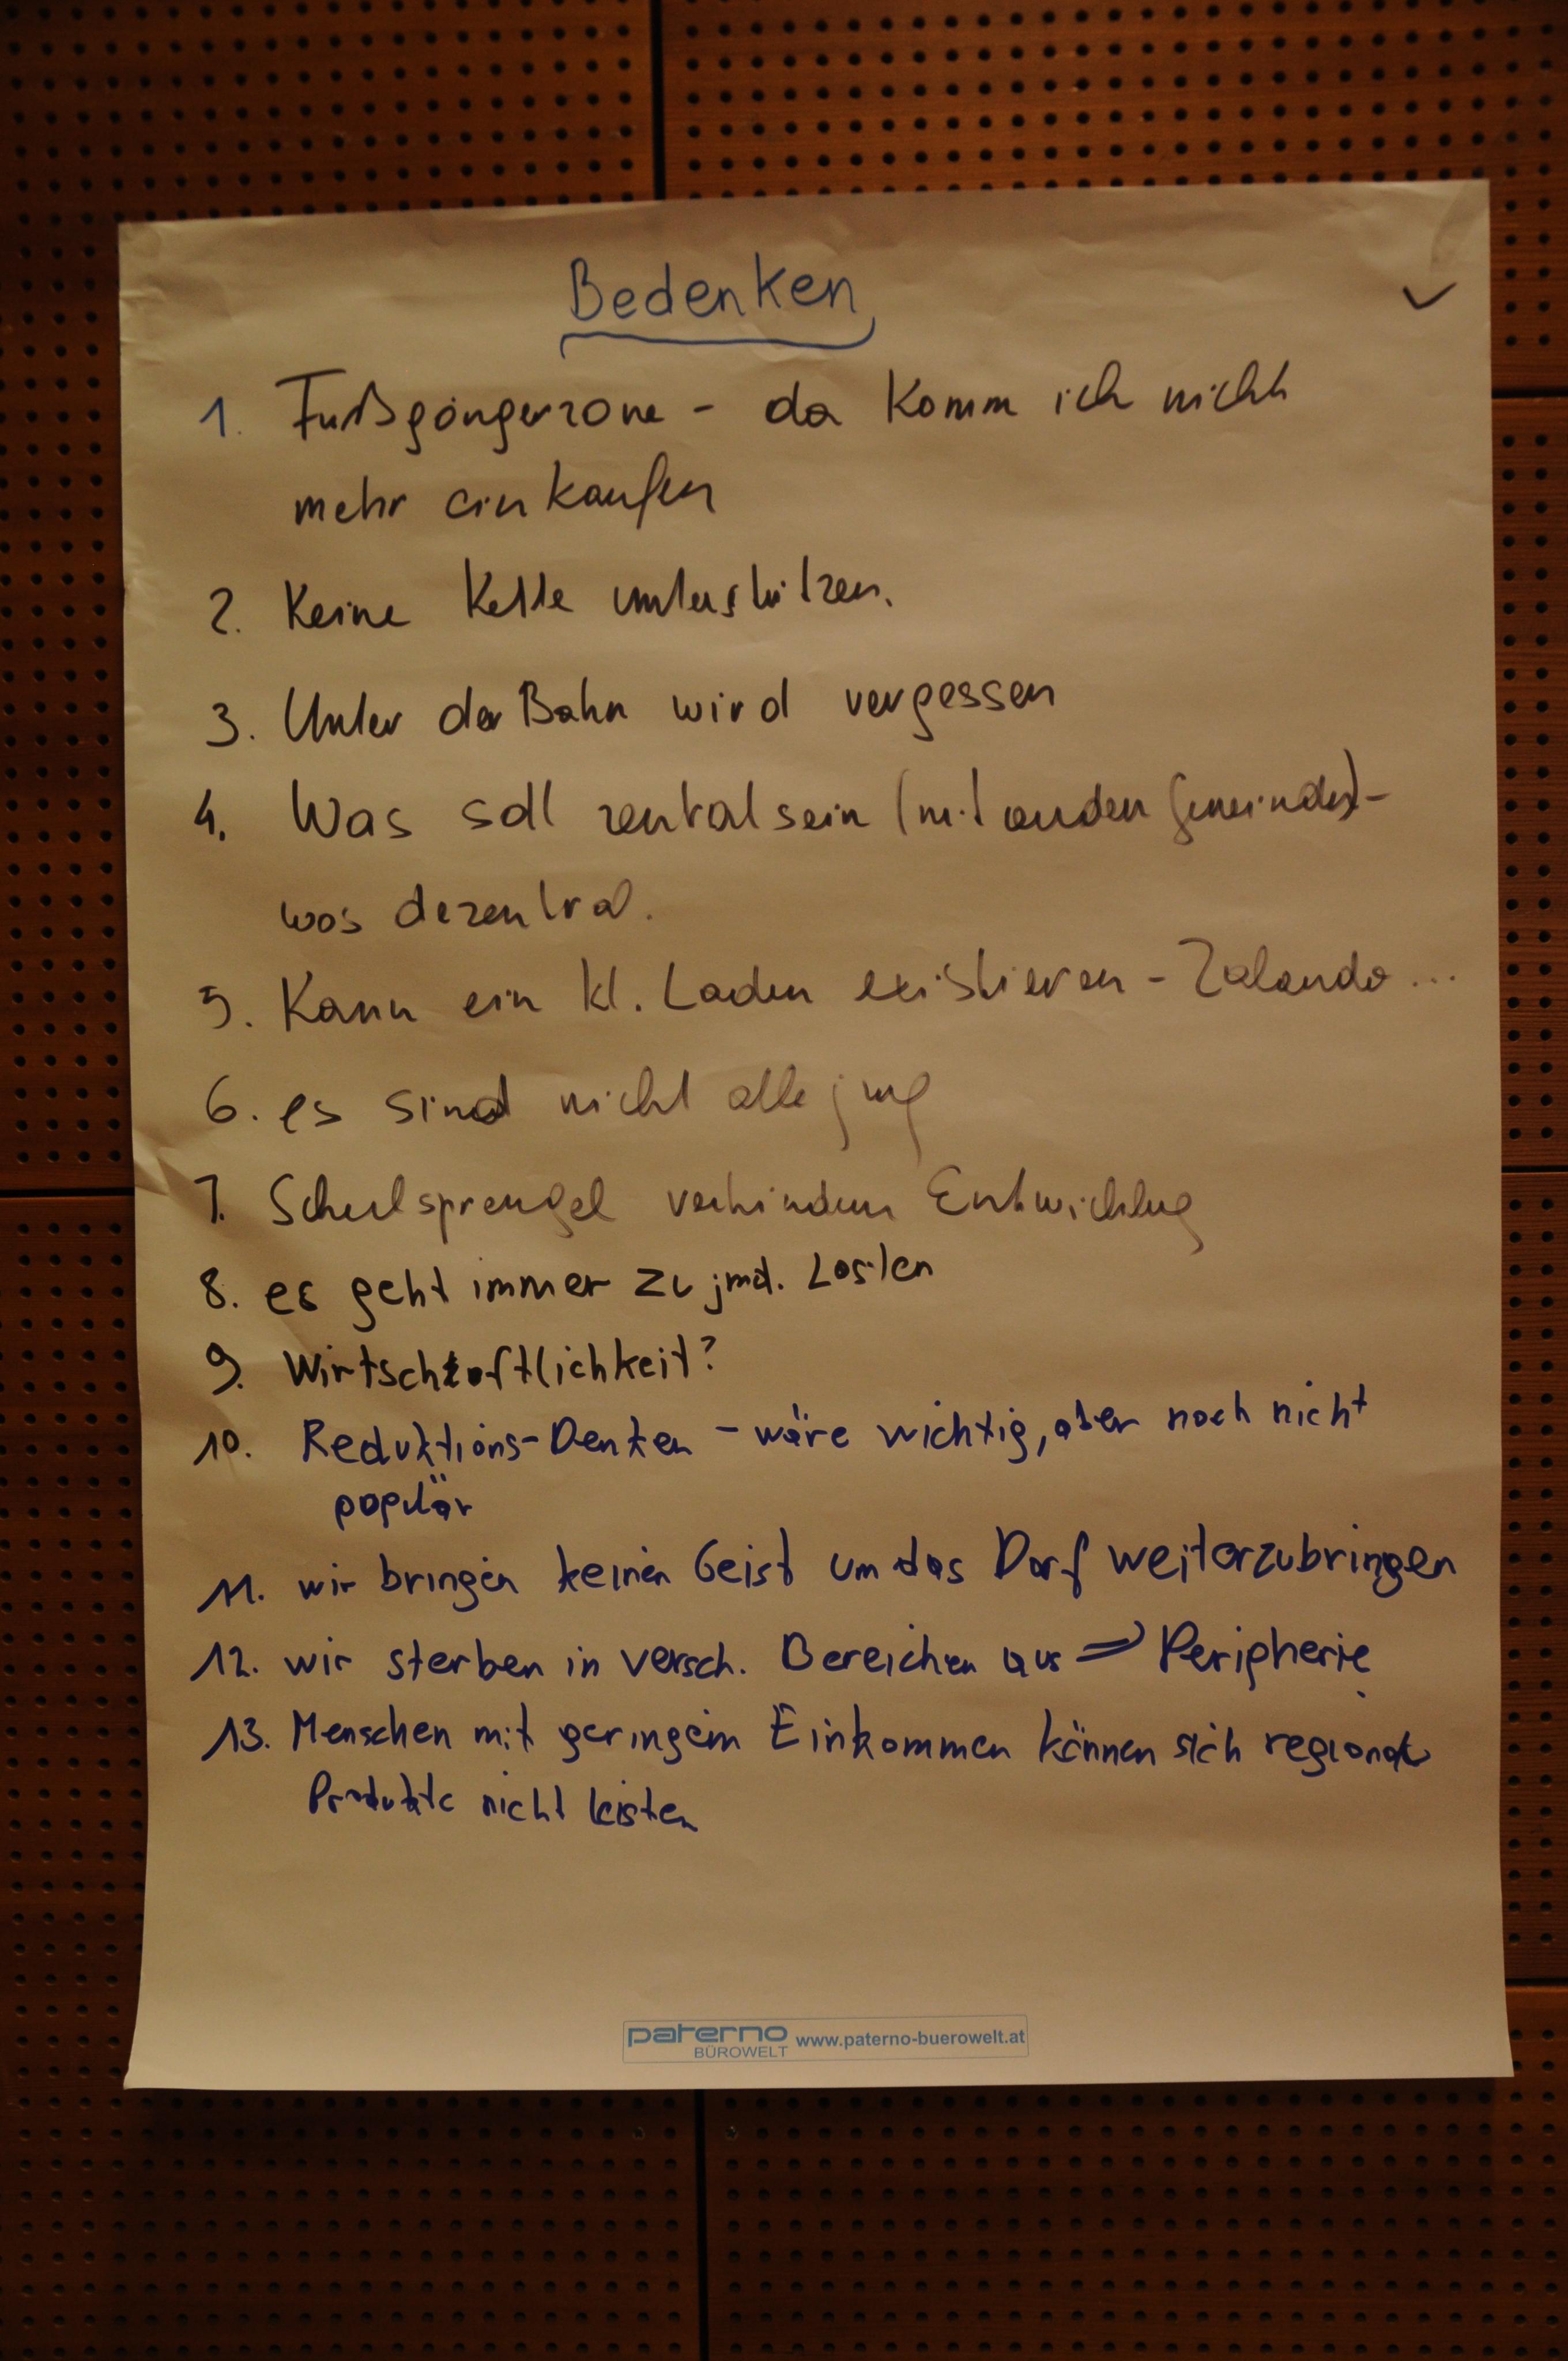 Bedenken
1. Fußgängerzone - da komm ich nicht
mehr einkaufen
2. Keine Kette unterstützen.
3. Unter der Bahn wird vergessen
4. Was soll zentral sein (mit anderen Gemeinden) -
was dezentral.
5. Kann ein kl. Laden existieren - Zalando ...
6. es sind nicht alle jung
7. Schulsprengel verhindern Entwicklung
8. es geht immer zu jmd. Lasten
9. Wirtschaftlichkeit?
10. Reduktions-Denken - wäre wichtig, aber noch nicht
populär
11. wir bringen keinen Geist um das Dorf weiterzubringen
12. wir sterben in versch. Bereichen aus => Peripherie
13. Menschen mit geringem Einkommen können sich regionale
Produkte nicht leisten
paterno
BÜROWELT www.paterno-buerowelt.at